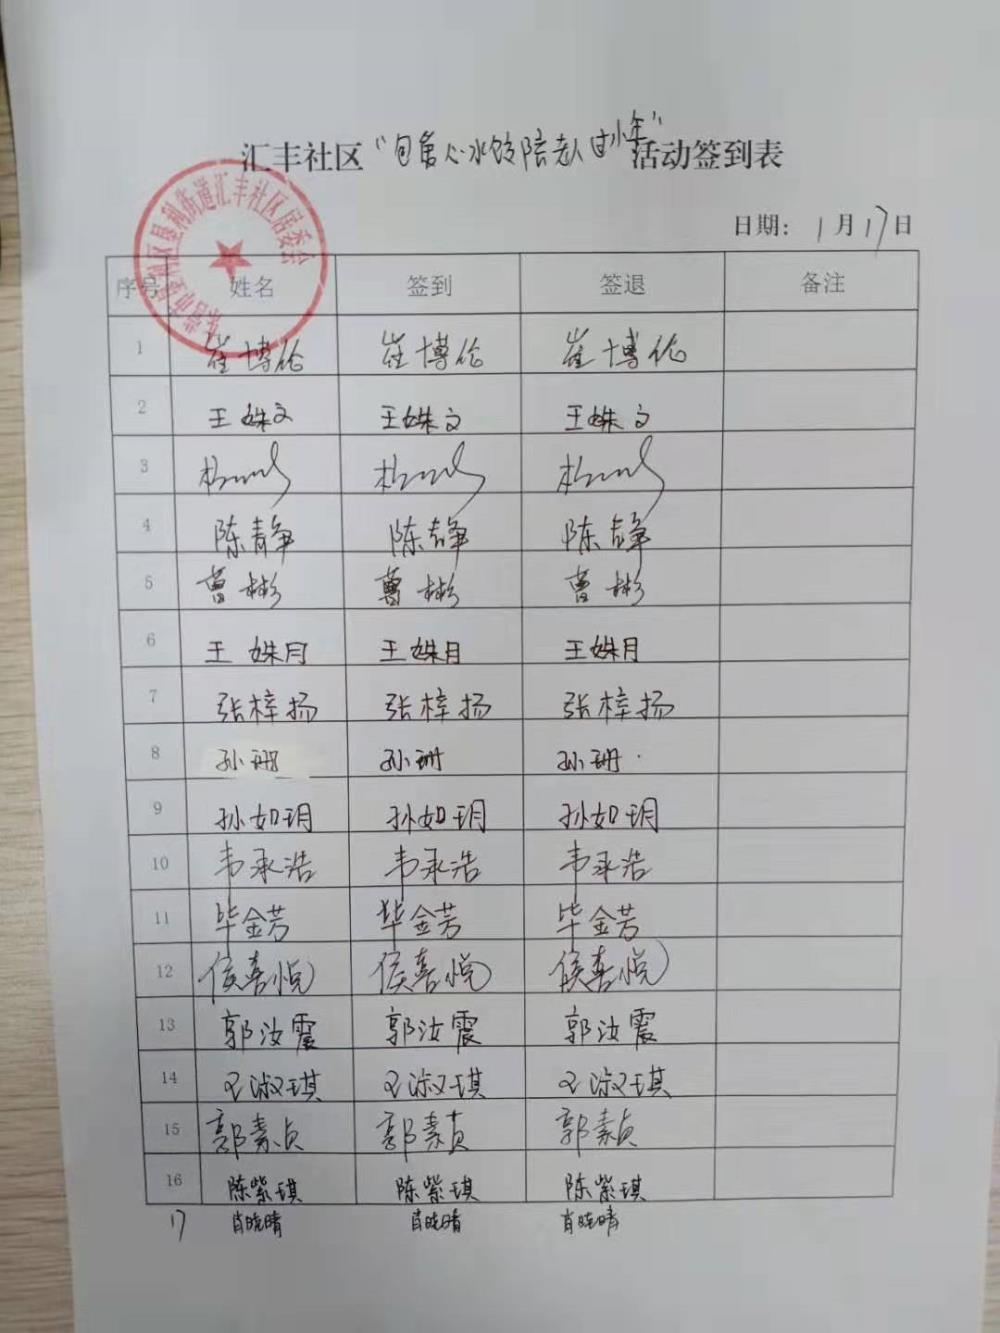 汇丰社区“包爱心水饺陪老人过小年”活动签到表
日期: 1月17日
东营市垦利区垦利街道汇丰社区居委会
序号 姓名 签到 签退 备注
1 崔博伦 崔博伦 崔博伦
2 王姝文 王姝文 王姝文
3
4 陈静 陈静 陈静
5 曹彬 曹彬 曹彬
6 王姝月 王姝月 王姝月
7 张梓扬 张梓扬 张梓扬
8 孙珊 孙珊 孙珊
9 孙如玥 孙如玥 孙如玥
10 韦承浩 韦承浩 韦承浩
11 毕金芳 毕金芳 毕金芳
12 侯喜悦 侯喜悦 侯喜悦
13 郭汝震 郭汝震 郭汝震
14 王淑琪 王淑琪 王淑琪
15 郭素贞 郭素贞 郭素贞
16 陈紫琪 陈紫琪 陈紫琪
17 肖晓晴 肖晓晴 肖晓晴